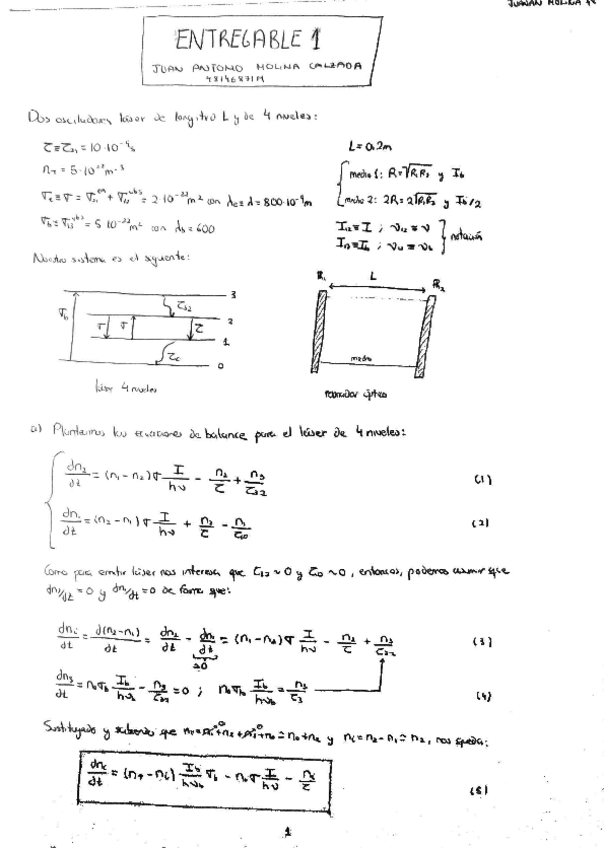 JUANAN MOLINA
ENTREGABLE 1
JUAN ANTONIO MOLINA CALZADA
48146871M
Dos osciladores láser de longitud L y de 4 niveles:
τ≡τ₂₁ = 10·10⁻⁹s
L=0.2m
medio 1: R=√R₁R₂ y I_b
medio 2: 2R=2√R₁R₂ y I_b/2
σ_b ≡ σ₁₃^abs = 5·10⁻²²m² con λ_b = 600
I₁₂≡I ; ν₁₂≡ν
I₁₃≡I_b ; ν₁₃≡ν_b
notación
Nuestro sistema es el siguiente:
σ_b
σ
σ
τ₃₂
τ
3
2
1
0
láser 4 niveles
R₁
L
R₂
medio
resonador óptico
a) Planteamos las ecuaciones de balance para el láser de 4 niveles:
dn₂/dt = (n₁-n₂)σ I/hν - n₂/τ + n₃/τ₃₂ (1)
dn₁/dt = (n₂-n₁)σ I/hν + n₂/τ - n₁/τ₁₀ (2)
Como para emitir láser nos interesa que τ₃₂~0 y τ₁₀~0, entonces, podemos asumir que
dn₃/dt=0 y dn₁/dt=0 de forma que:
dn_i/dt = d(n₂-n₁)/dt = dn₂/dt - dn₁/dt = (n₁-n₂)σ I/hν - n₂/τ + n₃/τ₃₂ (3)
≃0
dn₃/dt = n₀σ_b I_b/hν_b - n₃/τ₃₂ = 0 ; n₀σ_b I_b/hν_b = n₃/τ₃ (4)
Sustituyendo y sabiendo que y n_i=n₂-n₁≃n₂, nos queda:
dn_i/dt = (n_T-n_i) I_b/hν_b σ_b - n_iσ I/hν - n_i/τ (5)
1